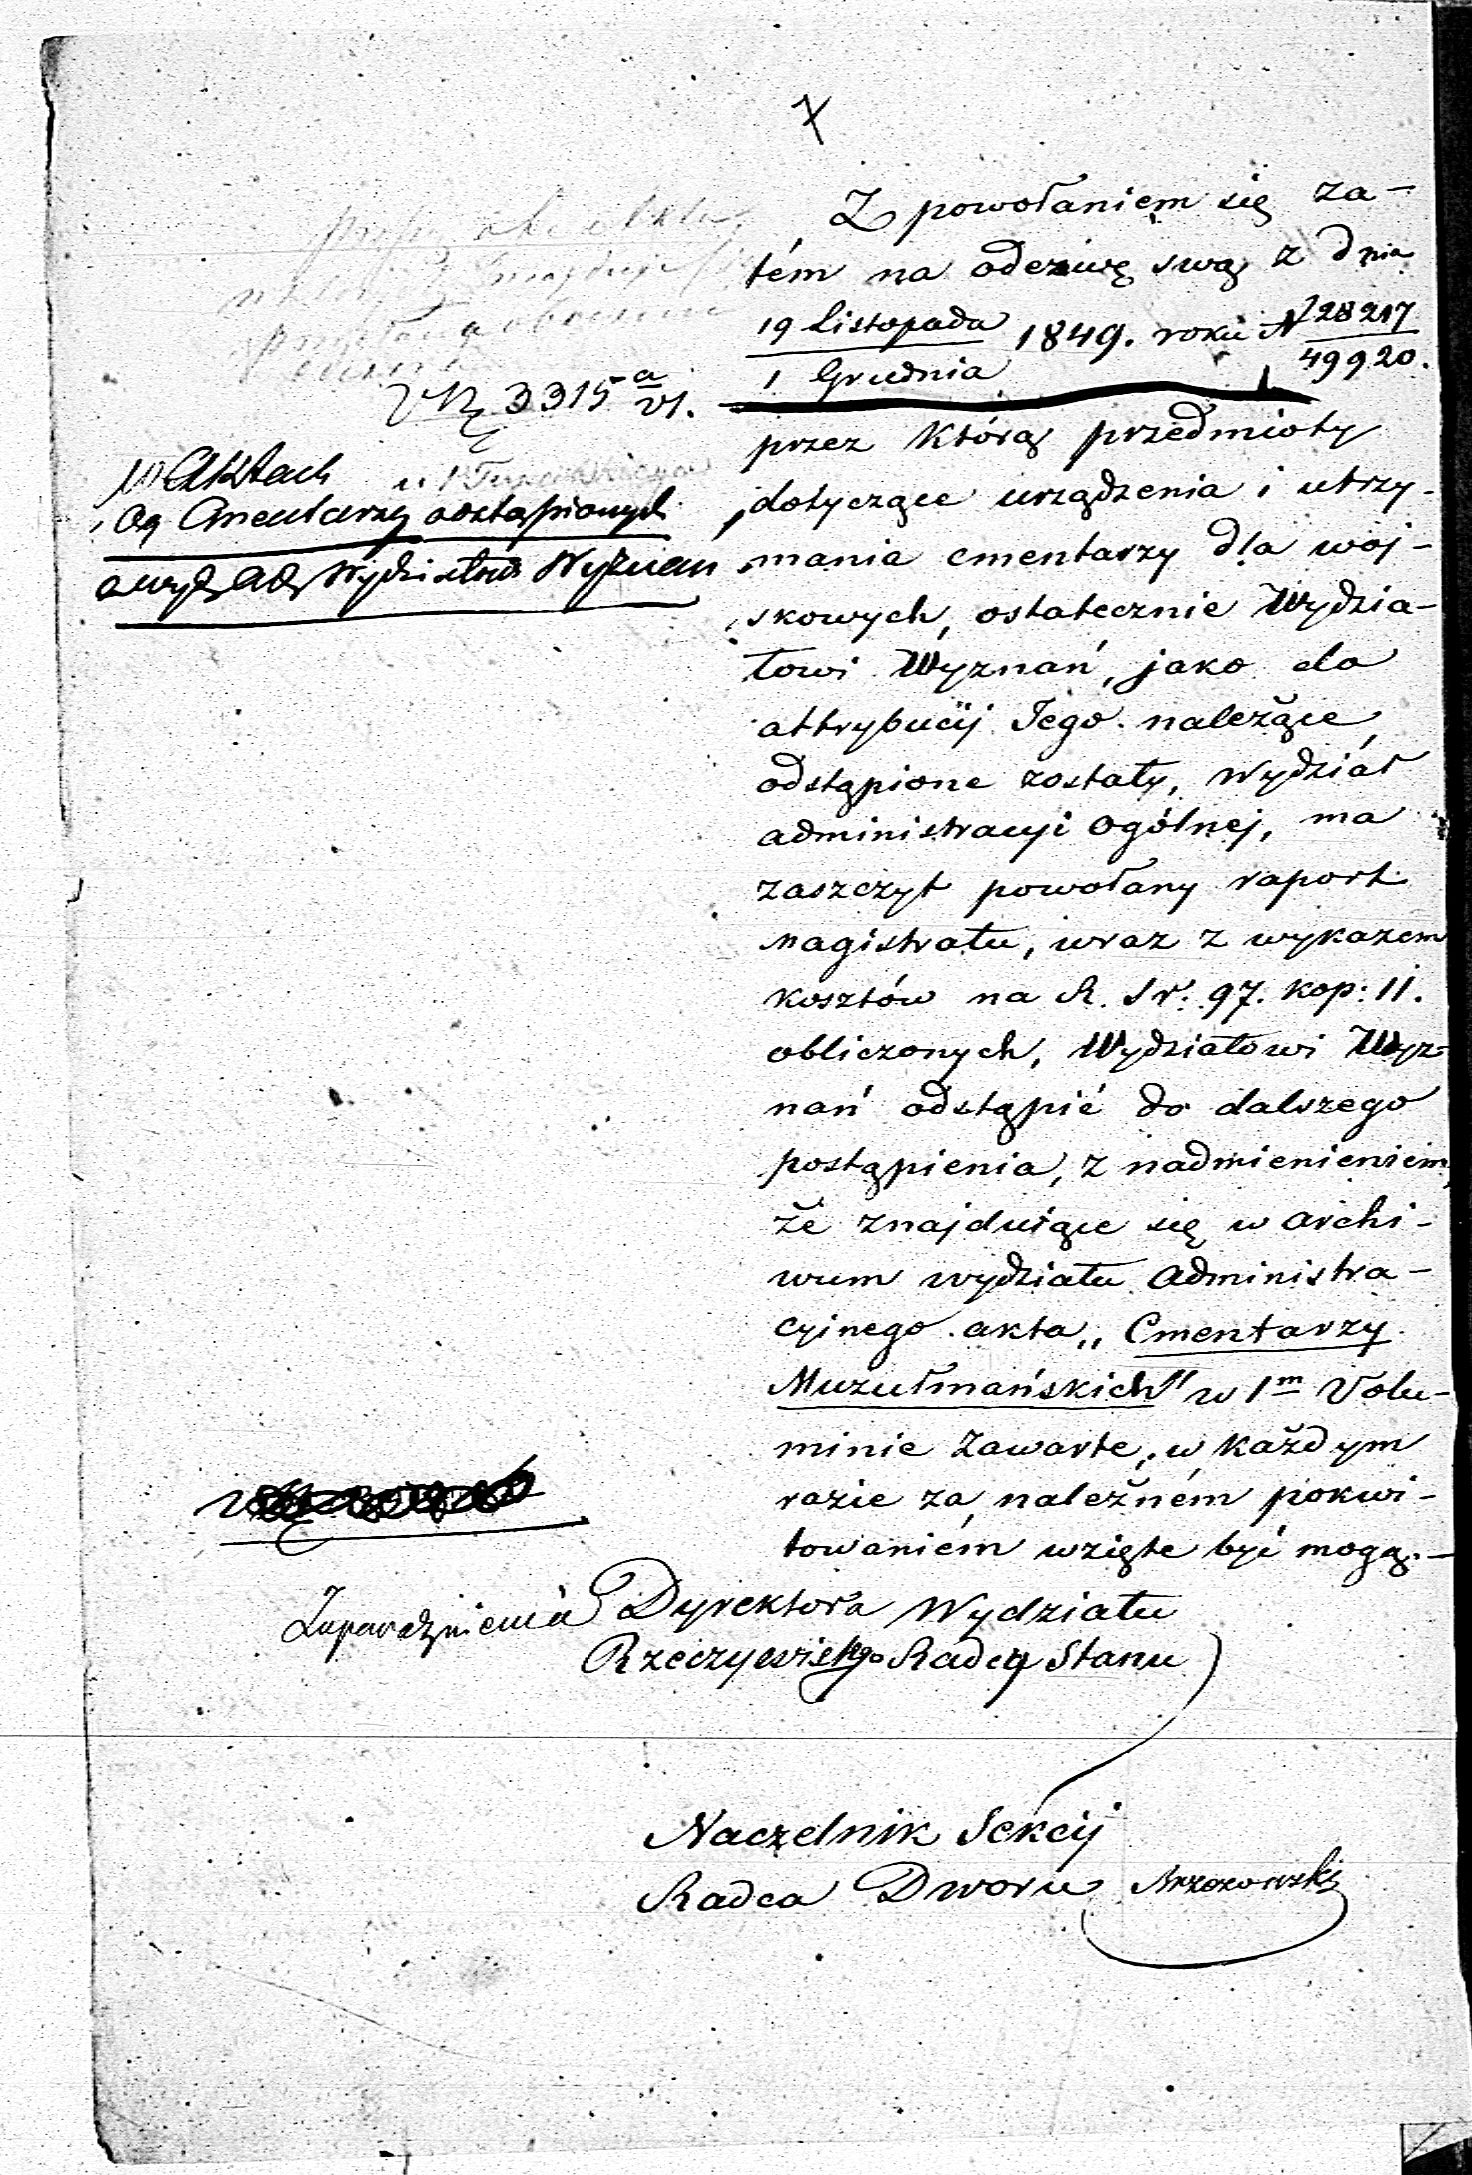 Z powołaniem się za-
tém na odezwę swą z dnia
19 Listopada
1 Grudnia 1849. roku N 28217
49920.
przez którą przedmioty
dotyczące urządzenia i utrzy-
mania cmentarzy dla woj-
skowych, ostatecznie Wydzia-
łowi Wyznań, jako do
attrybucij Jego należące
odstąpione zostały, Wydział
administracyi ogólnej, ma
zaszczyt powołany raport
Magistratu, wraz z wykazem
kosztów na R. Sr. 97. kop: 11.
obliczonych, Wydziałowi Wyz-
nań odstąpić do dalszego
postąpienia, z nadmienieniem,
że znajduiące się w archi-
wum wydziału administra-
cyinego akta „Cmentarzy
Muzułmańskich" w 1m Volu-
minie zawarte, w każdym
razie za należném pokwi-
towaniém wzięte być mogą.-
3315 a
VI.
w Aktach
Cmentarzy odstąpionych
Wydziałowi Wyznań
Dyrektora Wydziału
Rzeczywistego Radcy Stanu
Naczelnik Sekcij
Radca Dworu Brzozowski